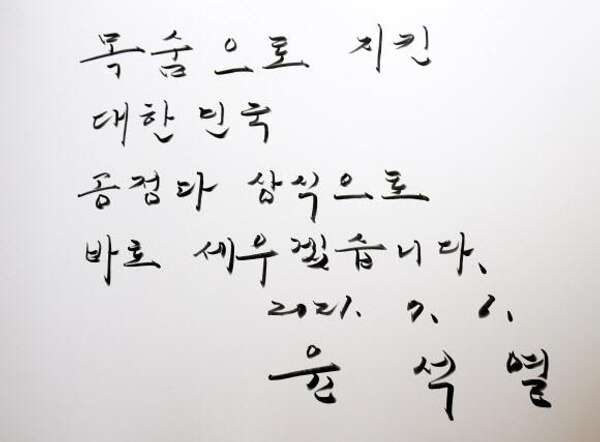 목숨으로 지킨
대한민국
공정과 상식으로
바로 세우겠습니다.
2021. 7. 6.
윤 석 열